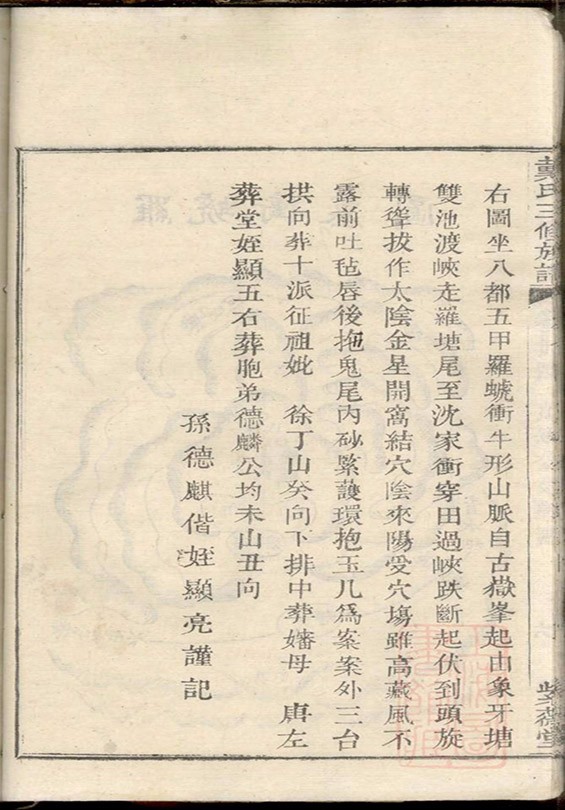 戴氏三修族譜
紫薇堂
右圖坐八都五甲羅蜣衝牛形山脈自古嶽峯起由象牙塘
雙池渡峽走羅塘尾至沈家衝穿田過峽跌斷起伏到頭旋
轉聳拔作太陰金星開窩結穴陰來陽受穴塲雖高藏風不
露前吐毡唇後拖鬼尾內砂緊護環抱玉几爲案案外三台
拱向葬十派征祖妣 徐丁山癸向下排中葬嬸母 唐左
葬堂姪顯五右葬胞弟德麟公均未山丑向
孫德麒偕姪顯亮謹記